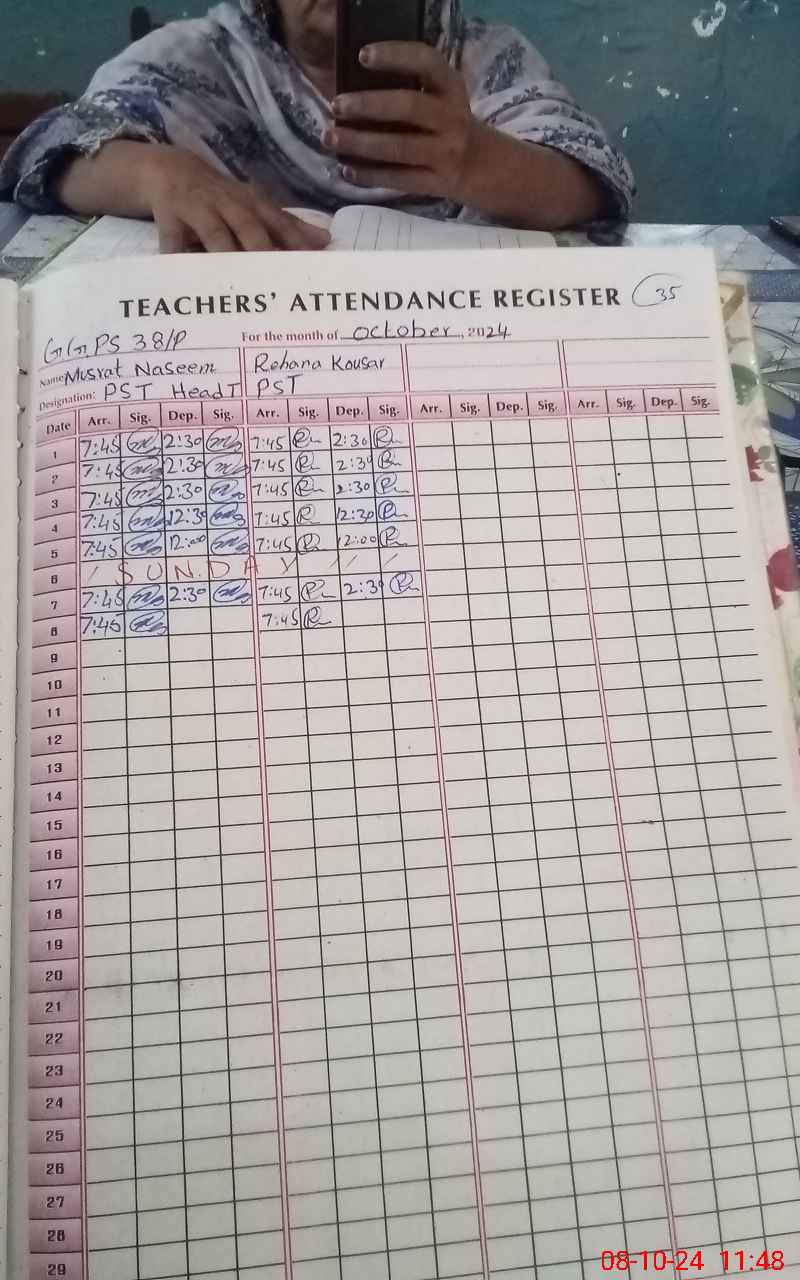 TEACHERS' ATTENDANCE REGISTER 35
GGPS 38/P For the month of October, 2024
Name Musrat Naseem Rehana Kousar
Designation: PST Head T PST
Date Arr. Sig. Dep. Sig. Arr. Sig. Dep. Sig. Arr. Sig. Dep. Sig. Arr. Sig. Dep. Sig.
1 7:45 2:30 7:45 2:30
2 7:45 2:30 7:45 2:30
3 7:45 2:30 7:45 2:30
4 7:45 12:30 7:45 12:30
5 7:45 12:00 7:45 12:00
6 / SUNDAY / / /
7 7:45 2:30 7:45 2:30
8 7:45 7:45
9
10
11
12
13
14
15
16
17
18
19
20
21
22
23
24
25
26
27
28
29
08-10-24 11:48